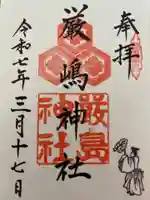 奉拝
厳嶋神社
厳島
神社
令和七年三月十七日